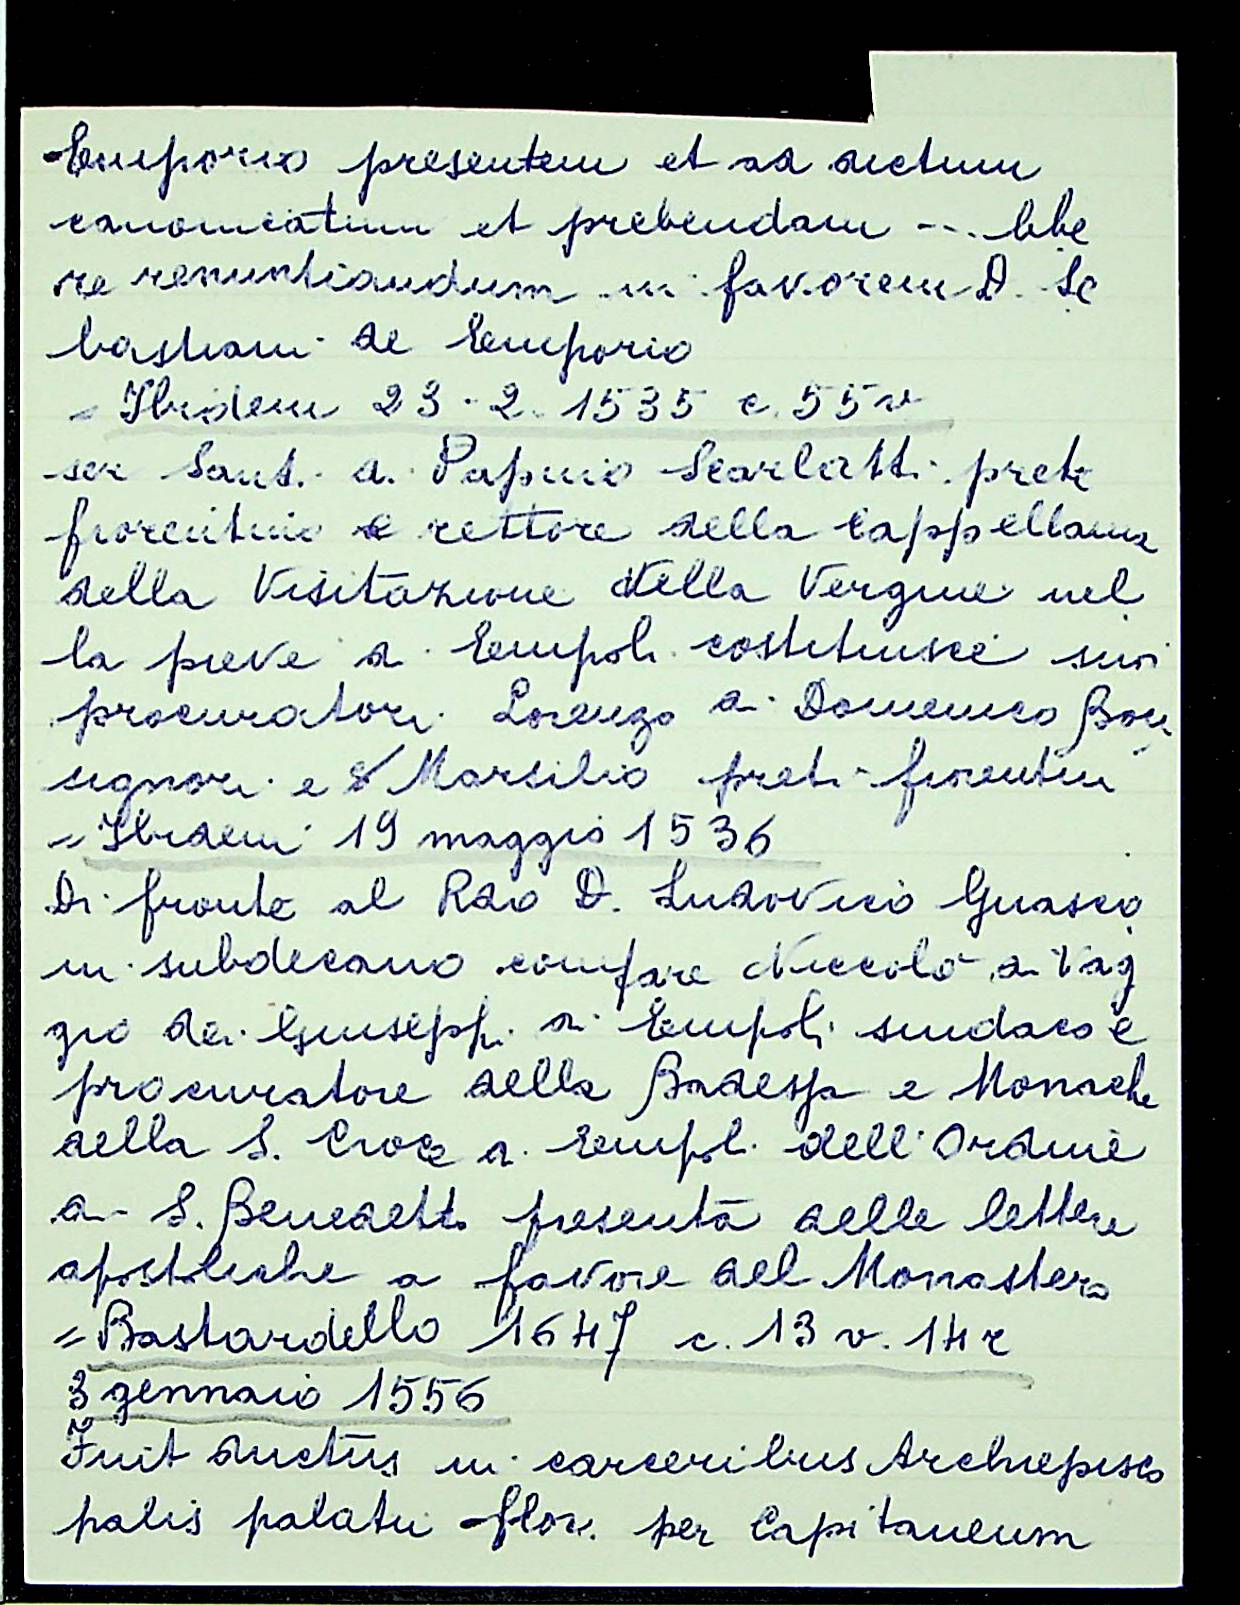 Emporio presentem et ad dictum
canonicatum et prebendam --. libe
re renuntiandum in favorem D. Se
bastiani de Emporio
= Ibidem 23-2-1535 c. 55v
ser Sant. di Papino Scarlatti prete
fiorentino e rettore della Cappellania
della Visitazione della Vergine nel
la pieve di Empoli costituisce suoi
procuratori Lorenzo di Domenico Bon
signori e S Marsilio preti fiorentini
= Ibidem 19 maggio 1536
Di fronte al Rdo D. Ludovico Guasco
ni subdecano compare Niccolò di Vag
gio dei Giuseppi di Empoli sindaco e
procuratore della Badessa e Monache
della S. Croce di Empoli dell'Ordine
di S. Benedetto presenta delle lettere
apostoliche a favore del Monastero
= Bastardello 1647 c. 13 v. 14 r
3 gennaio 1556
Fuit ductus in carceribus Archiepisco
palis palatii flor. per Capitaneum